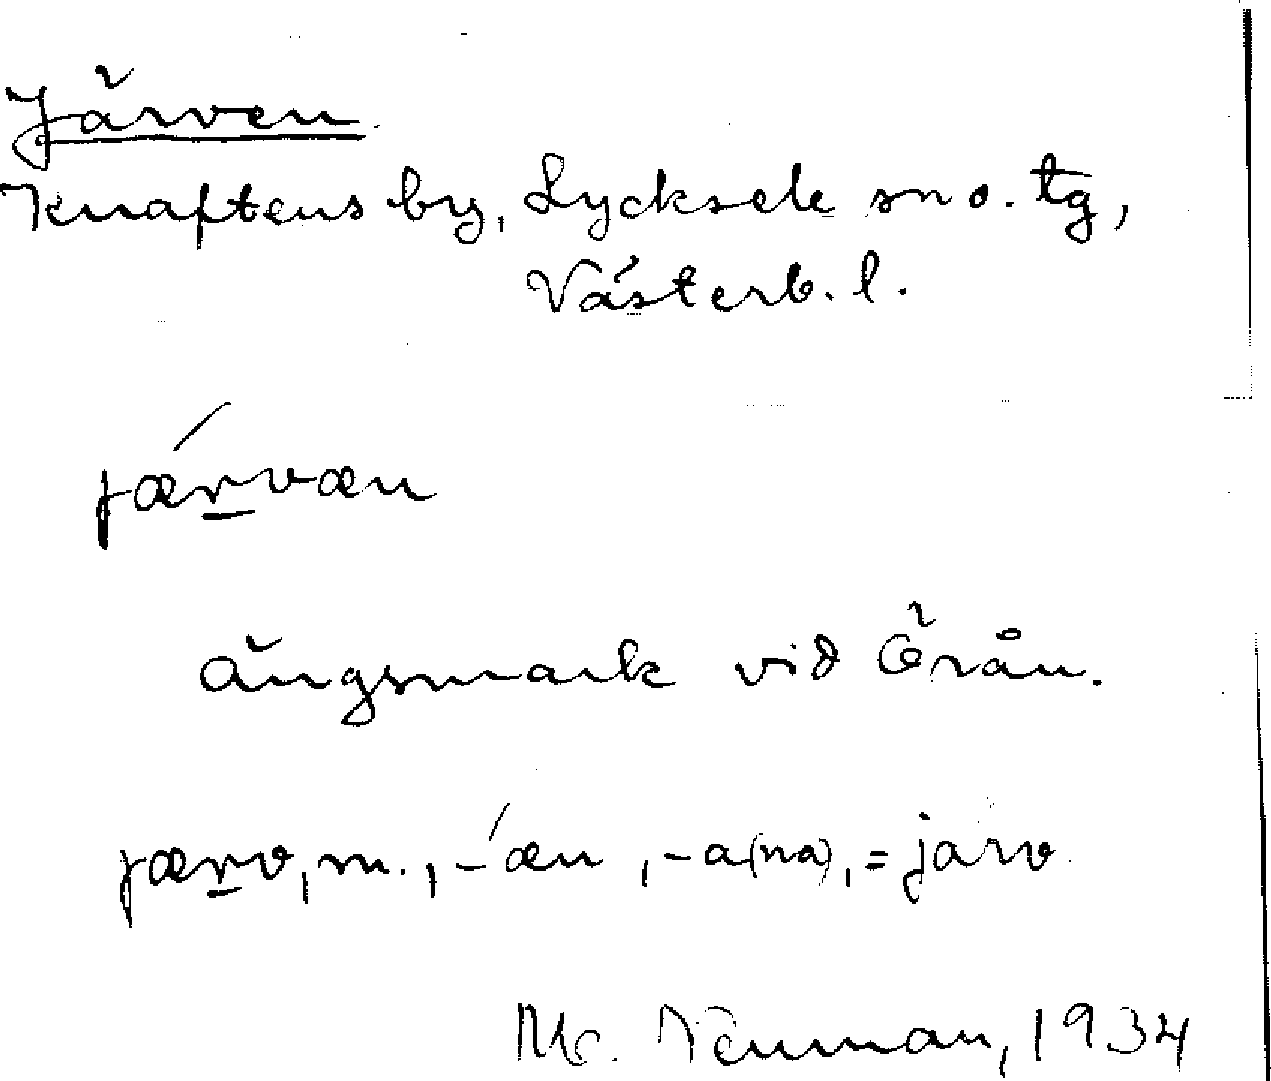 Järven
Knaftens by, Lycksele sn o. tg,
Västerb. l.
jærvæn
ängsmark vid Örån.
jærv, m., -́æn, -a(na), = järv
Mc. Neuman, 1934